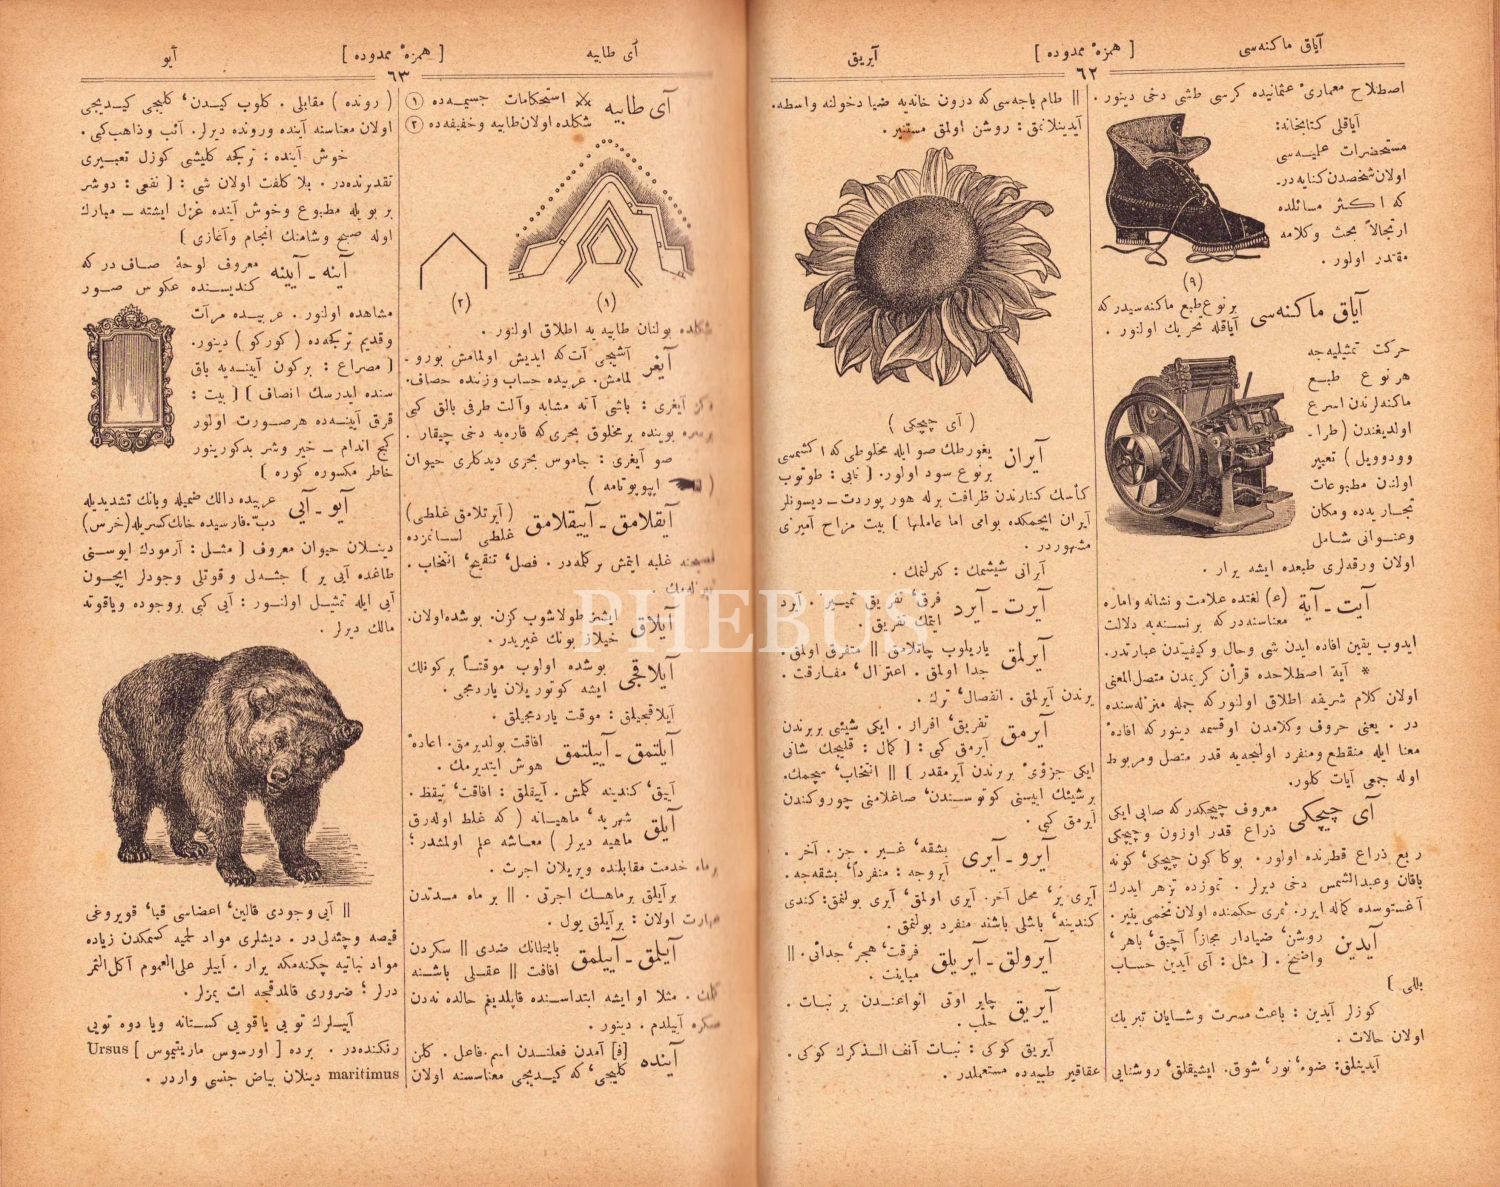 آیاق ماكنه‌سی
[ همزهٔ ممدوده ]
آیریق
٦٢
اصطلاح معماریٔ عثمانیده كرسی طشی دخی دینور .
آیاقلی كتابخانه :
مستحضرات علمیه‌سی
اولان شخصدن كنایه در.
كه اكثر مسائلده
ارتجالاً بحث وكلامه
مقتدر اولور .
(٩)
آیاق ماكنه‌سی
برنوع طبع ماكنه‌سیدر كه
آیاقله تحریك اولنور .
حركت تمثیلیه‌جه
هر نوع طبع
ماكنه‌لرندن اسرع
اولدیغندن ( طرا ـ
وودوویل ) تعبیر
اولنن مطبوعات
تجاریه‌ده ومكان
وعنوانی شامل
اولان ورقه‌لری طبعده ایشه یرار .
آیت ـ آیة
(ع) لغتده علامت ونشانه واماره
معناسنه‌در كه برنسنه‌یه دلالت
ایدوب یقین افاده ایدن شی وحال وكیفیتدن عبارتدر.
* آیة اصطلاحده قرآن كریمدن متصل‌المعنی
اولان كلام شریفه اطلاق اولنور كه جمله منزله‌سنده
در . یعنی حروف وكلامدن اوقسمه دینور كه افادهٔ
معنا ایله منقطع ومنفرد اولنجه‌یه قدر متصل ومربوط
اوله جمعی آیات كلور.
آی چیچكی
معروف چیچكدر كه صابی ایكی
ذراع قدر اوزون وچیچكی
ربع ذراع قطرنده اولور . بوكا كون چیچكی، كونه
باقان وعبدالشمس دخی دیرلر . تموزده تزهر ایدرك
آغستوسده كماله ایرر. ثمری حكمنده اولان تخمی ینیر .
آیدین
روشن، ضیادار مجازاً آچیق، باهر،
واضح . [ مثل : آی آیدین حساب
بللی ]
كوزلر آیدین : باعث مسرت وشایان تبریك
اولان حالات .
آیدینلق: ضوء، نور، شوق. ایشیقلق، روشنایی
|| طام باجه‌سی كه درون خانه‌یه ضیا دخولنه واسطه.
آیدینلانمق : روشن اولمق مستنیر .
( آی چیچكی )
آیران
یغورطك صو ایله مخلوطی كه اكشمسی
برنوع سود اولور. [ نابی : طوتوب
كأسك كنارندن ظرافت برله هور پوردت ـ دیسونلر
آیران ایچمكده بوامی اما عاملها ] بیت مزاح آمیزی
مشهوردر .
آیرانی شیشمك : كبرلنمك .
آیرت ـ آیرد
فرق، تفریق تمییز . آیرد
ایتمك تفریق .
آیرلمق
یاریلوب چاتلامق || متفرق اولمق.
جدا اولمق . اعتزال، مفارقت .
یرندن آیرلمق . انفصال، ترك .
آیرمق
تفریق، افراز . ایكی شیئی بربرندن
آیرمق كبی : [ كمال : قلیجك شانی
ایكی جزؤی بربرندن آیرمقدر ] || انتخاب، سچمك.
برشیئك اییسنی كوتوسندن، صاغلامنی چوروكندن
آیرمق كبی .
آیرو ـ آیری
بشقه، غیر . جز . آخر .
آیروجه : منفرداً، بشقه‌جه .
آیری یر، محل آخر. آیری اولمق، آیری بولنمق: كندی
كندینه، باشلی باشنه منفرد بولنمق .
آیرولق ـ آیریلق
فرقت، هجر، جدائی. ||
مباینت .
آیریق
چایر اوتی انواعندن بر نبات .
حلب .
آیریق كوكی : نبات آنف الذكرك كوكی .
عقاقیر طبیه‌ده مستعملدر .
آی طابیه
[ همزهٔ ممدوده ]
آیو
٦٣
آی طابیه
استحكامات جسیمه‌ده (١)
شكلده اولان طابیه وخفیفه‌ده (٢)
(١)
(٢)
شكلده بولنان طابیه یه اطلاق اولنور .
آیغر
آشیجی آت كه ایدیش اولمامش بورو ـ
لمامش. عربیده حساب وزننده حصاف.
دكز آیغری : باشی آته مشابه وآلت طرفی بالق كبی
بوینده برمخلوق بحری كه قاره‌یه دخی چیقار .
صو آیغری : جاموس بحری دیدكلری حیوان
( ایپوپوتامه )
آیقلامق ـ آییقلامق
( آیرتلامق غلطی )
غلطی لسانمزده
غلبه ایتمش بركله‌در . فصل، تنقیح، انتخاب .
آیلاق
ایشز طولاشوب كزن. بوشده اولان.
خیلاز بونك غیریدر .
آیلاقجی
بوشده اولوب موقتاً بركونلك
ایشه كوتوریلان یاردمجی .
آیلاقجیلق : موقت یاردمجیلق .
آیلتمق ـ آییلتمق
افاقت بولدیرمق. اعادهٔ
هوش ایتدیرمك .
آییق، كندینه كلمش . آییقلق : افاقت، تیقظ .
آیلق
شهریه، ماهیانه ( كه غلط اوله‌رق
ماهیه دیرلر ) معاشه علم اولمشدر ؛
برماه خدمت مقابلنده ویریلان اجرت .
برآیلق برماهلك اجرتی . || بر ماه مدتدن
عبارت اولان : برآیلق یول .
آیلمق ـ آییلمق
بایلمانك ضدی || سكردن
افاقت || عقلی باشنه
كلمك . مثلا او ایشه ابتداسنده قاپلدیغم حالده نه‌دن
صكره آییلدم . دینور .
آینده
[ف] آمدن فعلندن اسم فاعل. كلن
كلیجی، كه كیدیجی معناسنه اولان
( رونده ) مقابلی . كلوب كیدن، كلیجی كیدیجی
اولان معناسنه آینده ورونده دیرلر . آئب وذاهب كبی .
خوش آینده : تركجه كلیشی كوزل تعبیری
تقدیرنده‌در . بلا كلفت اولان شی : [ نفعی : دوشر
بر بویله مطبوع وخوش آینده غزل ایشته ـ مبارك
اوله صبح وشامنك انجام وآغازی ]
آینه ـ آیینه
معروف لوحهٔ صاف در كه
كندیسنده عكوس صور
مشاهده اولنور . عربیده مرآت
وقدیم تركجه‌ده ( كورنكو ) دینور.
[ مصراع : بركون آیینه‌یه باق
سنده ایدرسك انصاف ] [ بیت :
قرق آیینه‌ده هرصورت اولور
كج اندام ـ خیر وشر بدكورینور
خاطر مكسوره كوره ]
آیو ـ آیی
عربیده دالك ضمیله وبانك تشدیدیله
دب. فارسیده خانك كسریله (خرس)
دینلان حیوان معروف [ مثل : آرمودك ایوسنی
طاغده آیی یر ] جثه‌لی و قوتلی وجودلر ایچون
آیی ایله تمثیل اولنور : آیی كبی بروجوده ویاقوته
مالك دیرلر .
|| آیی وجودی قالین، اعضاسی قبا، قویروغی
قیصه وجثه‌لی در . دیشلری مواد لحمیه كسمكدن زیاده
مواد نباتیه چكنه‌مكه یرار . آییلر علی‌العموم آكل‌الثمر
درلر ؛ ضروری قالمدقجه ات یمزلر .
آییلرك تویی یاقویی كستانه ویا دوه تویی
رنكنده‌در . برده [ اورسوس ماریتیموس ] Ursus
maritimus دینلان بیاض جنسی واردر .
PHEBUS